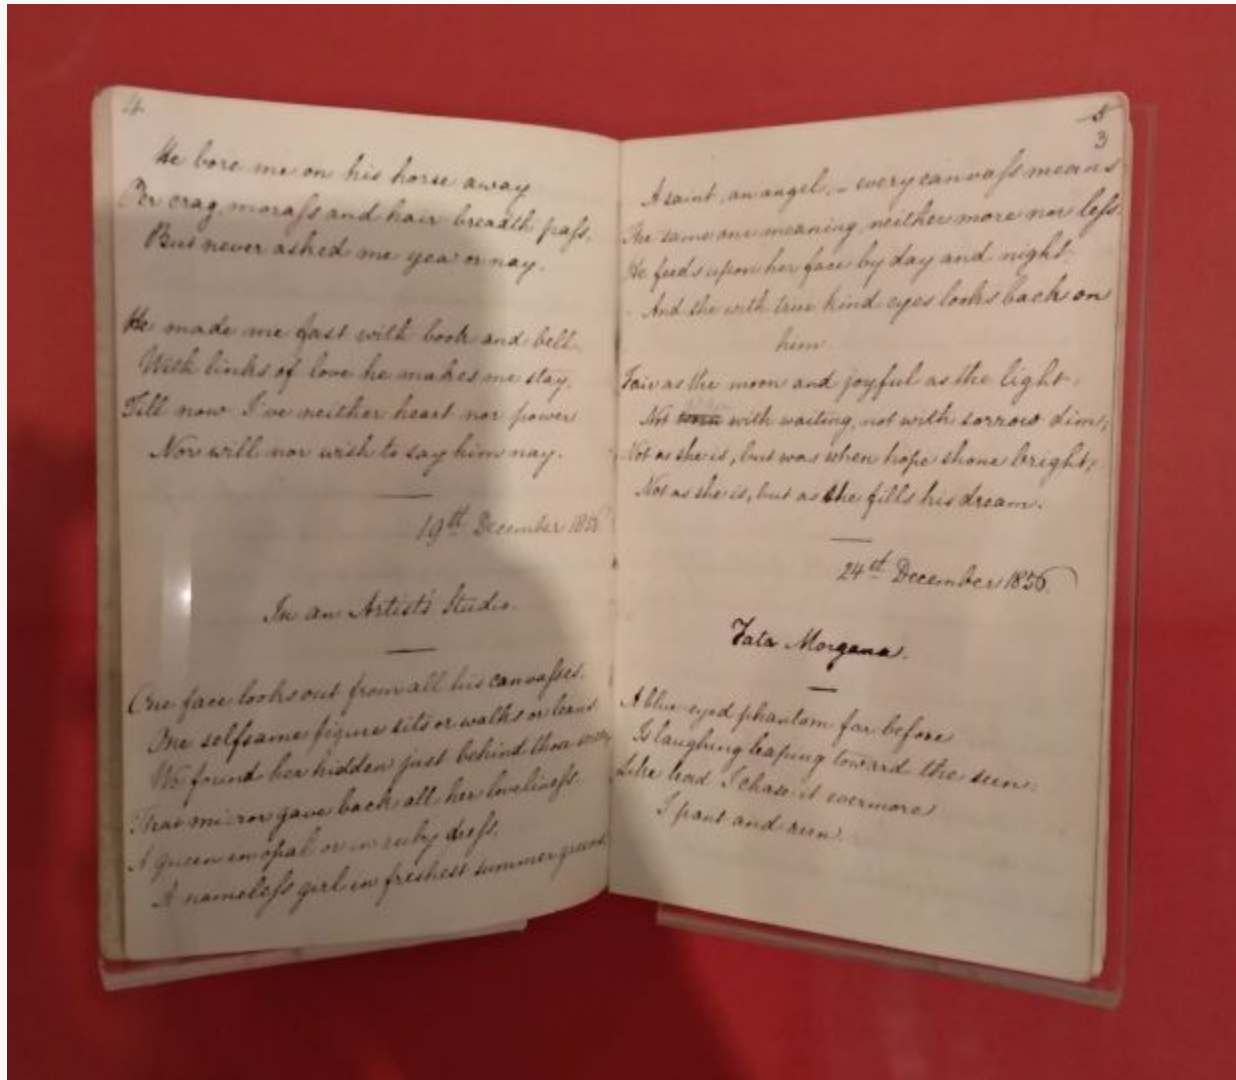 4
He bore me on his horse away
Per crag, moraſs and hair breadth paſs,
But never asked me yea or nay.
He made me fast with book and bell,
With links of love he makes me stay,
Till now I've neither heart nor power
Nor will nor wish to say him nay.
19th December 1856
In an Artist's Studio.
One face looks out from all his canvaſses,
One selfsame figure sits or walks or leans
We found her hidden just behind those
That mirror gave back all her lovelineſs.
A queen in opal or in ruby dreſs,
A nameleſs girl in freshest summer greens,
5
3
A saint, an angel, – every canvaſs means
The same one meaning, neither more nor leſs.
He feeds upon her face by day and night,
And she with true kind eyes looks back on
him
Fair as the moon and joyful as the light,
Not with waiting, not with sorrow dim;
Not as she is, but was when hope shone bright;
Not as she is, but as she fills his dream.
24th December 1856
Fata Morgana.
A blue-eyed phantom far before
Is laughing leaping toward the sun:
Like lead I chase it evermore
I pant and run.